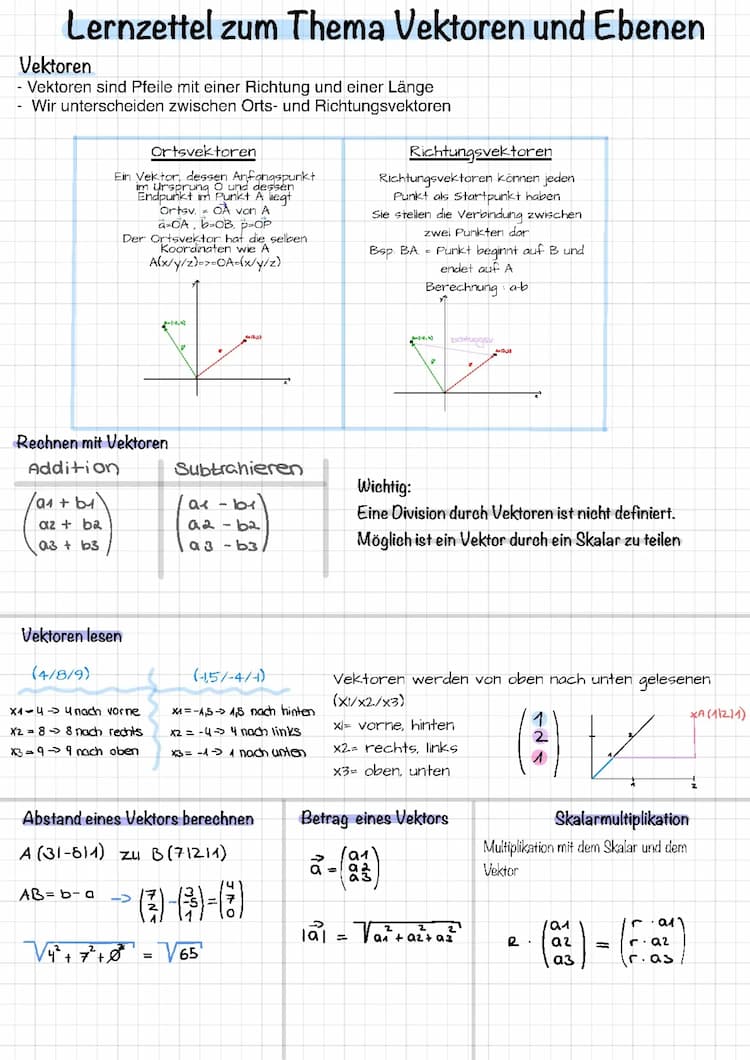 Lernzettel zum Thema Vektoren und Ebenen
Vektoren
- Vektoren sind Pfeile mit einer Richtung und einer Länge
- Wir unterscheiden zwischen Orts- und Richtungsvektoren
Ortsvektoren
Ein Vektor, dessen Anfangspunkt
im Ursprung O und dessen
Endpunkt im Punkt A liegt
Ortsv. = OA von A
a=OA, b=OB, p=OP
Der Ortsvektor hat die selben
Koordinaten wie A
A(x/y/z)=>=OA=(x/y/z)
Richtungsvektoren
Richtungsvektoren können jeden
Punkt als Startpunkt haben
Sie stellen die Verbindung zwischen
zwei Punkten dar
Bsp. BA = Punkt beginnt auf B und
endet auf A
Berechnung : a-b
Rechnen mit Vektoren
Addition
a1 + b1
a2 + b2
a3 + b3
Subtrahieren
a1 - b1
a2 - b2
a3 - b3
Wichtig:
Eine Division durch Vektoren ist nicht definiert.
Möglich ist ein Vektor durch ein Skalar zu teilen
Vektoren lesen
(4/8/9)
x1=4 -> 4 nach vorne
x2 = 8 -> 8 nach rechts
x3 = 9 -> 9 nach oben
(-1,5/-4/-1)
x1=-1,5-> 1,5 nach hinten
x2 = -4-> 4 nach links
x3= -1-> 1 nach unten
Vektoren werden von oben nach unten gelesenen
(x1/x2/x3)
x1= vorne, hinten
x2= rechts, links
x3= oben, unten
1
2
1
xA (1|2|1)
1
1
2
Abstand eines Vektors berechnen
A (3|-5|1) zu B (7|2|1)
AB= b-a -> (7 2 1) - (3 -5 1) = (4 7 0)
√4² + 7² + 0² = √65
Betrag eines Vektors
a = (a1 a2 a3)
|a| = √a1² + a2² + a3²
Skalarmultiplikation
Multiplikation mit dem Skalar und dem
Vektor
R · (a1 a2 a3) = (r · a1 r · a2 r · a3)